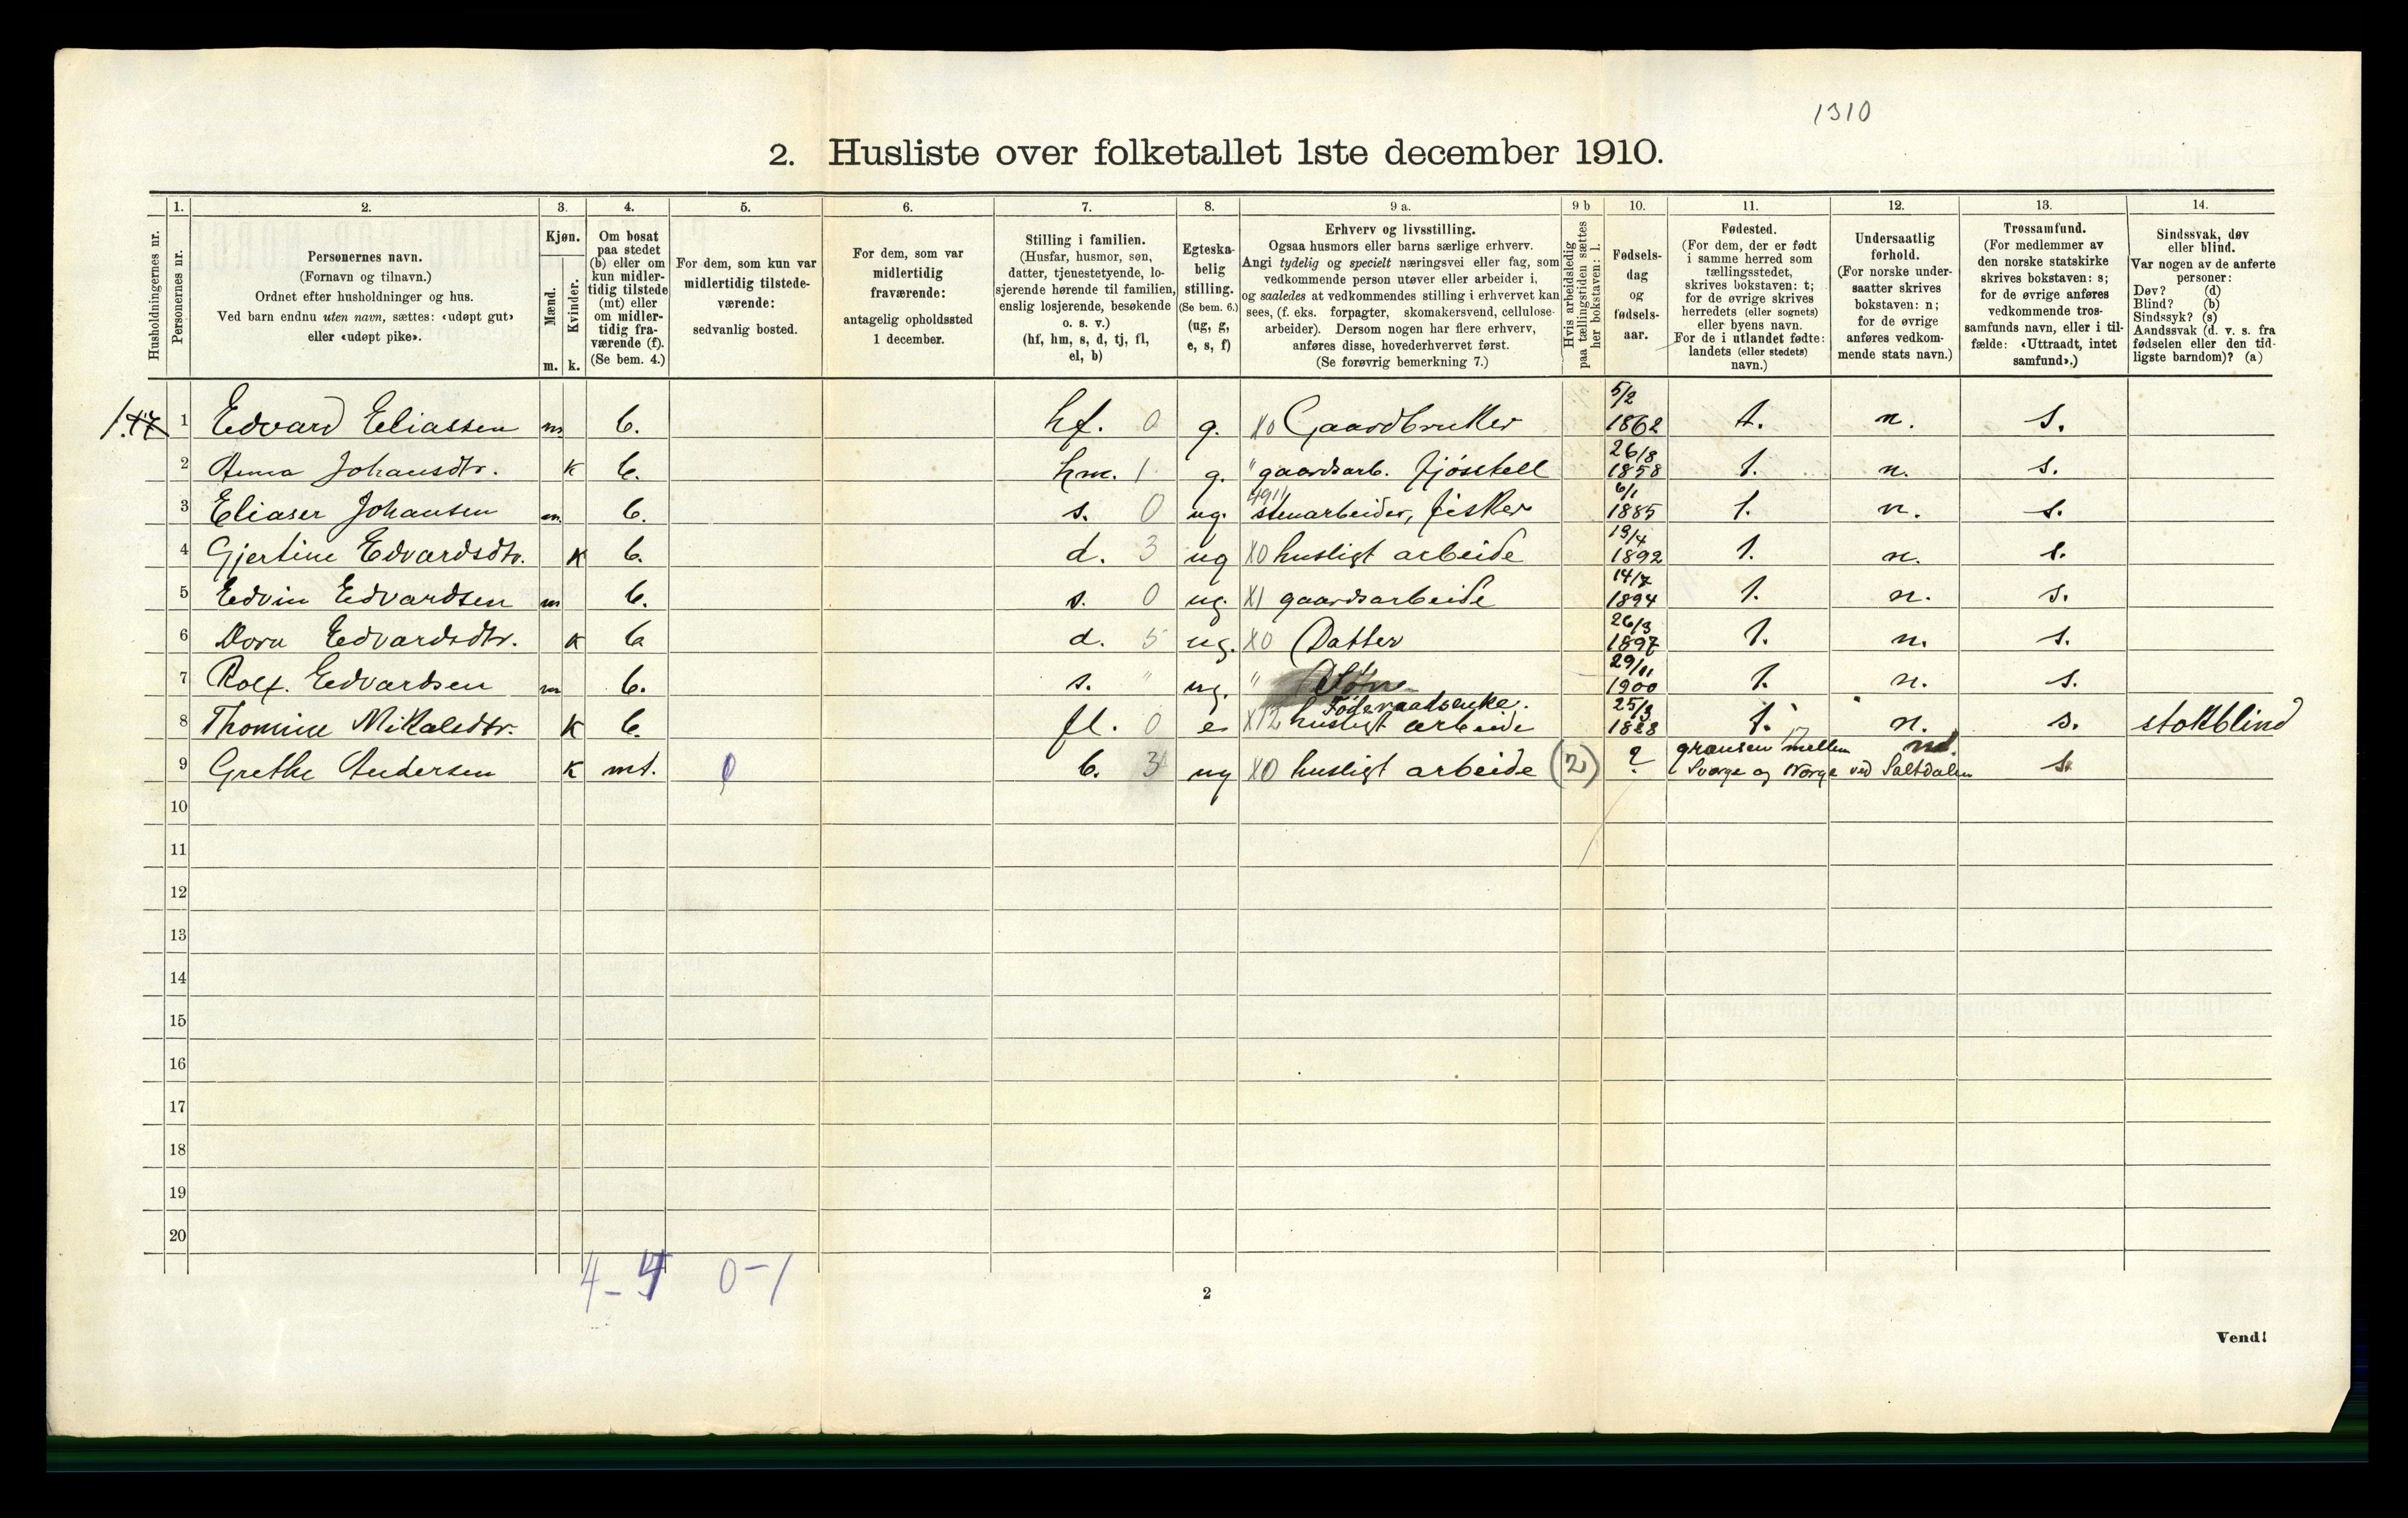 1310
2. Husliste over folketallet 1ste december 1910.
1. 2. 3. 4. 5. 6. 7. 8. 9 a. 9 b 10. 11. 12. 13. 14.
Husholdningernes nr.
Personernes nr.
Personernes navn.
(Fornavn og tilnavn.)
Ordnet efter husholdninger og hus.
Ved barn endnu uten navn, sættes: «udøpt gut»
eller «udøpt pike».
Kjøn.
Mænd.
Kvinder.
m. k.
Om bosat
paa stedet
(b) eller om
kun midler-
tidig tilstede
(mt) eller
om midler-
tidig fra-
værende (f).
(Se bem. 4.)
For dem, som kun var
midlertidig tilstede-
værende:
sedvanlig bosted.
For dem, som var
midlertidig
fraværende:
antagelig opholdssted
1 december.
Stilling i familien.
(Husfar, husmor, søn,
datter, tjenestetyende, lo-
sjerende hørende til familien,
enslig losjerende, besøkende
o. s. v.)
(hf, hm, s, d, tj, fl,
el, b)
Egteska-
belig
stilling.
(Se bem. 6.)
(ug, g,
e, s, f)
Erhverv og livsstilling.
Ogsaa husmors eller barns særlige erhverv.
Angi tydelig og specielt næringsvei eller fag, som
vedkommende person utøver eller arbeider i,
og saaledes at vedkommendes stilling i erhvervet kan
sees, (f. eks. forpagter, skomakersvend, cellulose-
arbeider). Dersom nogen har flere erhverv,
anføres disse, hovederhvervet først.
(Se forøvrig bemerkning 7.)
Hvis arbeidsledig
paa tællingstiden sættes
her bokstaven: l.
Fødsels-
dag
og
fødsels-
aar.
Fødested.
(For dem, der er født
i samme herred som
tællingsstedet,
skrives bokstaven: t;
for de øvrige skrives
herredets (eller sognets)
eller byens navn.
For de i utlandet fødte:
landets (eller stedets)
navn.)
Undersaatlig
forhold.
(For norske under-
saatter skrives
bokstaven: n;
for de øvrige
anføres vedkom-
mende stats navn.)
Trossamfund.
(For medlemmer av
den norske statskirke
skrives bokstaven: s;
for de øvrige anføres
vedkommende tros-
samfunds navn, eller i til-
fælde: «Uttraadt, intet
samfund».)
Sindssvak, døv
eller blind.
Var nogen av de anførte
personer:
Døv? (d)
Blind? (b)
Sindssyk? (s)
Aandssvak (d. v. s. fra
fødselen eller den tid-
ligste barndom)? (a)
1. 1 Edvard Eliassen m b. hf. 0 g. X0 Gaardbruker 5/2 1862 t. n. s.
2 Anna Johansdtr. k b. hm. 1 g. " gaardsarb. fjøsstell 26/8 1858 t. n. s.
3 Eliaser Johansen m b. s. 0 ug. stenarbeider, fisker 6/1 1885 t. n. s.
4 Gjertine Edvardsdtr. k b. d. 3 ug X0 husligt arbeide 13/4 1892 t. n. s.
5 Edvin Edvardsen m b. s. 0 ug. X1 gaardsarbeide 14/7 1894 t. n. s.
6 Dora Edvardsdtr. k b d. 5 ug. X0 Datter 26/3 1897 t. n. s.
7 Rolf. Edvardsen m b. s. " ug. " Søn 29/11 1900 t. n. s.
Føderaadsenke.
8 Thomine Mikalsdtr. k b. fl. 0 e X12 husligt arbeide 25/3 1828 t. n. s. stokblind
9 Grethe Andersen k mt. 0 b. 3 ug X0 husligt arbeide (2) ? grænsen mellem
Sverge og Norge ved Saltdalen s.
10
11
12
13
14
15
16
17
18
19
20
4 - 4 0 - 1
2
Vend!